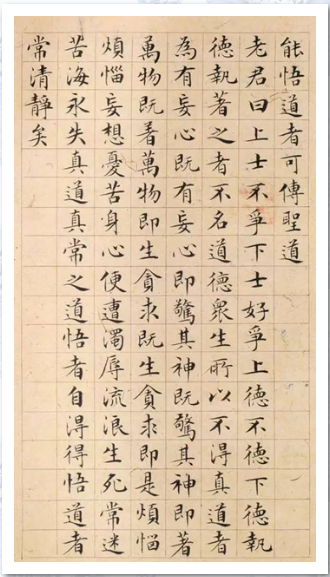 能悟道者可傳聖道
老君曰上士不爭下士好爭上德不德下德執
德執著之者不名道德衆生所以不得真道者
為有妄心既有妄心即驚其神既驚其神即著
萬物既着萬物即生貪求既生貪求即是煩惱
煩惱妄想憂苦身心便遭濁辱流浪生死常迷
苦海永失真道真常之道悟者自得得悟道者
常清靜矣